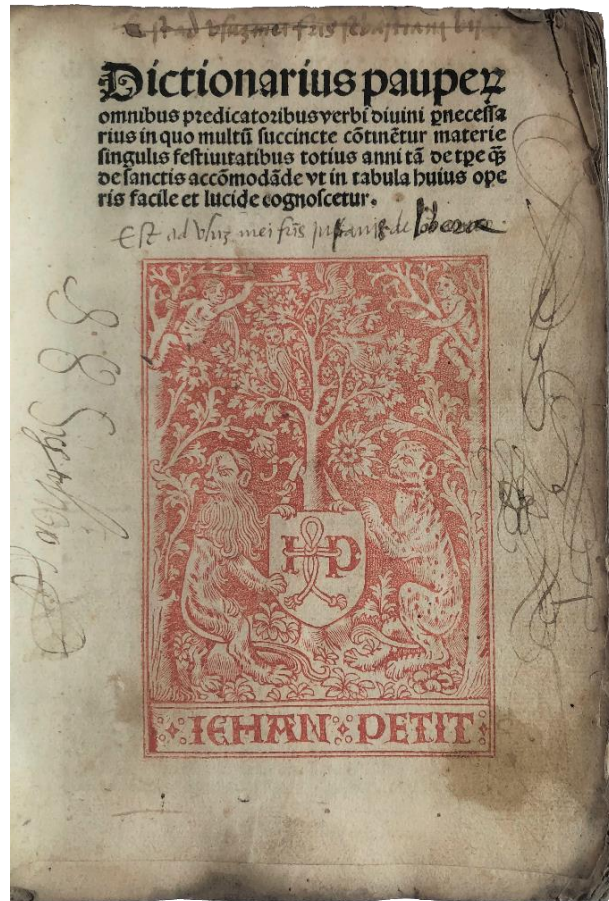 Est ad vsuz mei fris sebastiani
Dictionarius pauperꝝ
omnibus predicatoribus verbi diuini ꝑnecessa
rius in quo multū succincte cōtinētur materie
singulis festiuitatibus totius anni tā de tꝑe ꝙ̄
de sanctis accōmodāde vt in tabula huius ope
ris facile et lucide cognoscetur.
Est ad vsuz mei fris de
I P
IEHAN PETIT